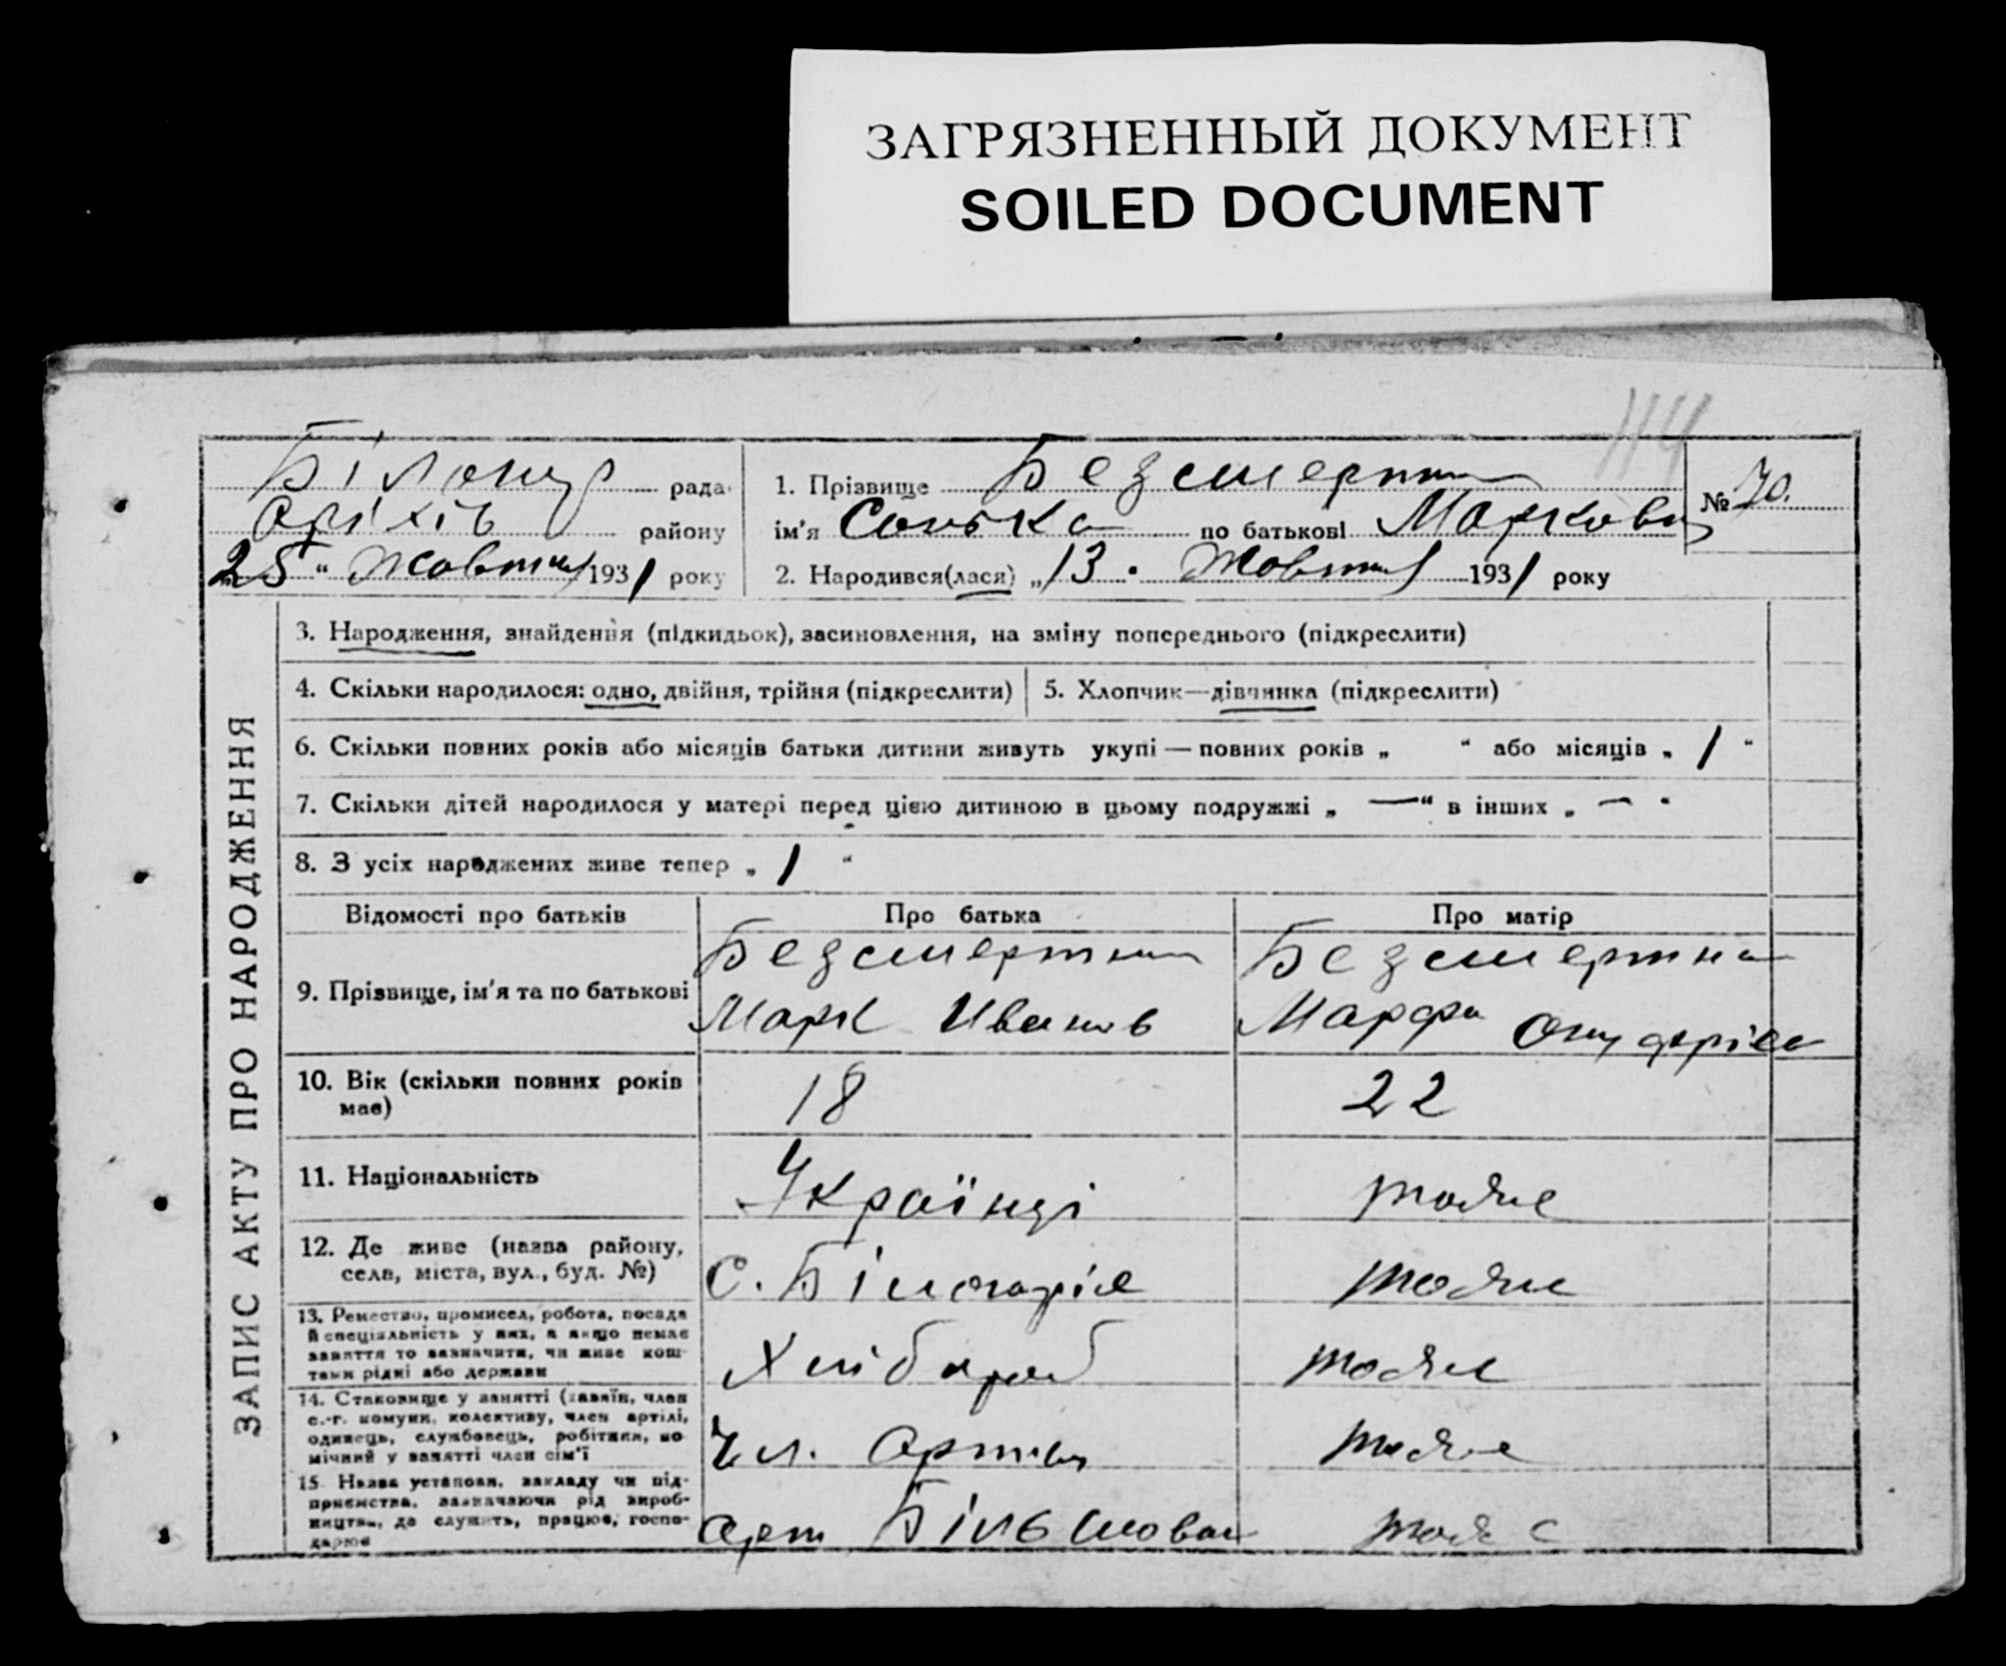 ЗАГРЯЗНЕННЫЙ ДОКУМЕНТ
SOILED DOCUMENT
114
рада
Оріхів району
„25“ Жовтня 1931 року
1. Прізвище Безсмертна
ім'я Солька по батькові Марковн
№ 70.
2. Народився(лася) „13. Жовтня 1931 року
ЗАПИС АКТУ ПРО НАРОДЖЕННЯ
3. Народження, знайдення (підкидьок), засиновлення, на зміну попереднього (підкреслити)
4. Скільки народилося: одно, двійня, трійня (підкреслити)
5. Хлопчик—дівчинка (підкреслити)
6. Скільки повних років або місяців батьки дитини живуть укупі — повних років „ “ або місяців „ 1 “
7. Скільки дітей народилося у матері перед цією дитиною в цьому подружжі „ — “ в інших „ — “
8. З усіх народжених живе тепер „ 1 “
Відомості про батьків Про батька Про матір
9. Прізвище, ім'я та по батькові
Безсмертний
Марк Иванов
Безсмертна
Марфа
10. Вік (скільки повних років має)
18 22
11. Національність
Українці тоже
12. Де живе (назва району, села, міста, вул., буд. №)
с. Білогоріє тоже
13. Ремество, промисел, робота, посада
й спеціяльність у них, а якщо немає
заняття то зазначити, чи живе кош-
тами рідні або держави
Хлібороб тоже
14. Становище у занятті (хазяїн, член
с.-г. комуни, колективу, член артілі,
одинець, службовець, робітник, по-
мічний у занятті член сім'ї
Чл. Артілі тоже
15. Назва установи, закладу чи під-
приємства, зазначаючи рід вироб-
ництва, де служить, працює, госпо-
дарює
Арт Більшовик тоже